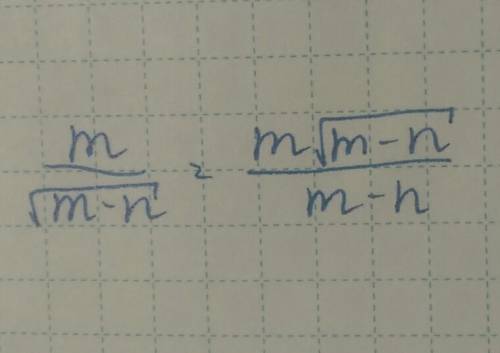 m/√(m-n) = m√(m-n)/(m-n)